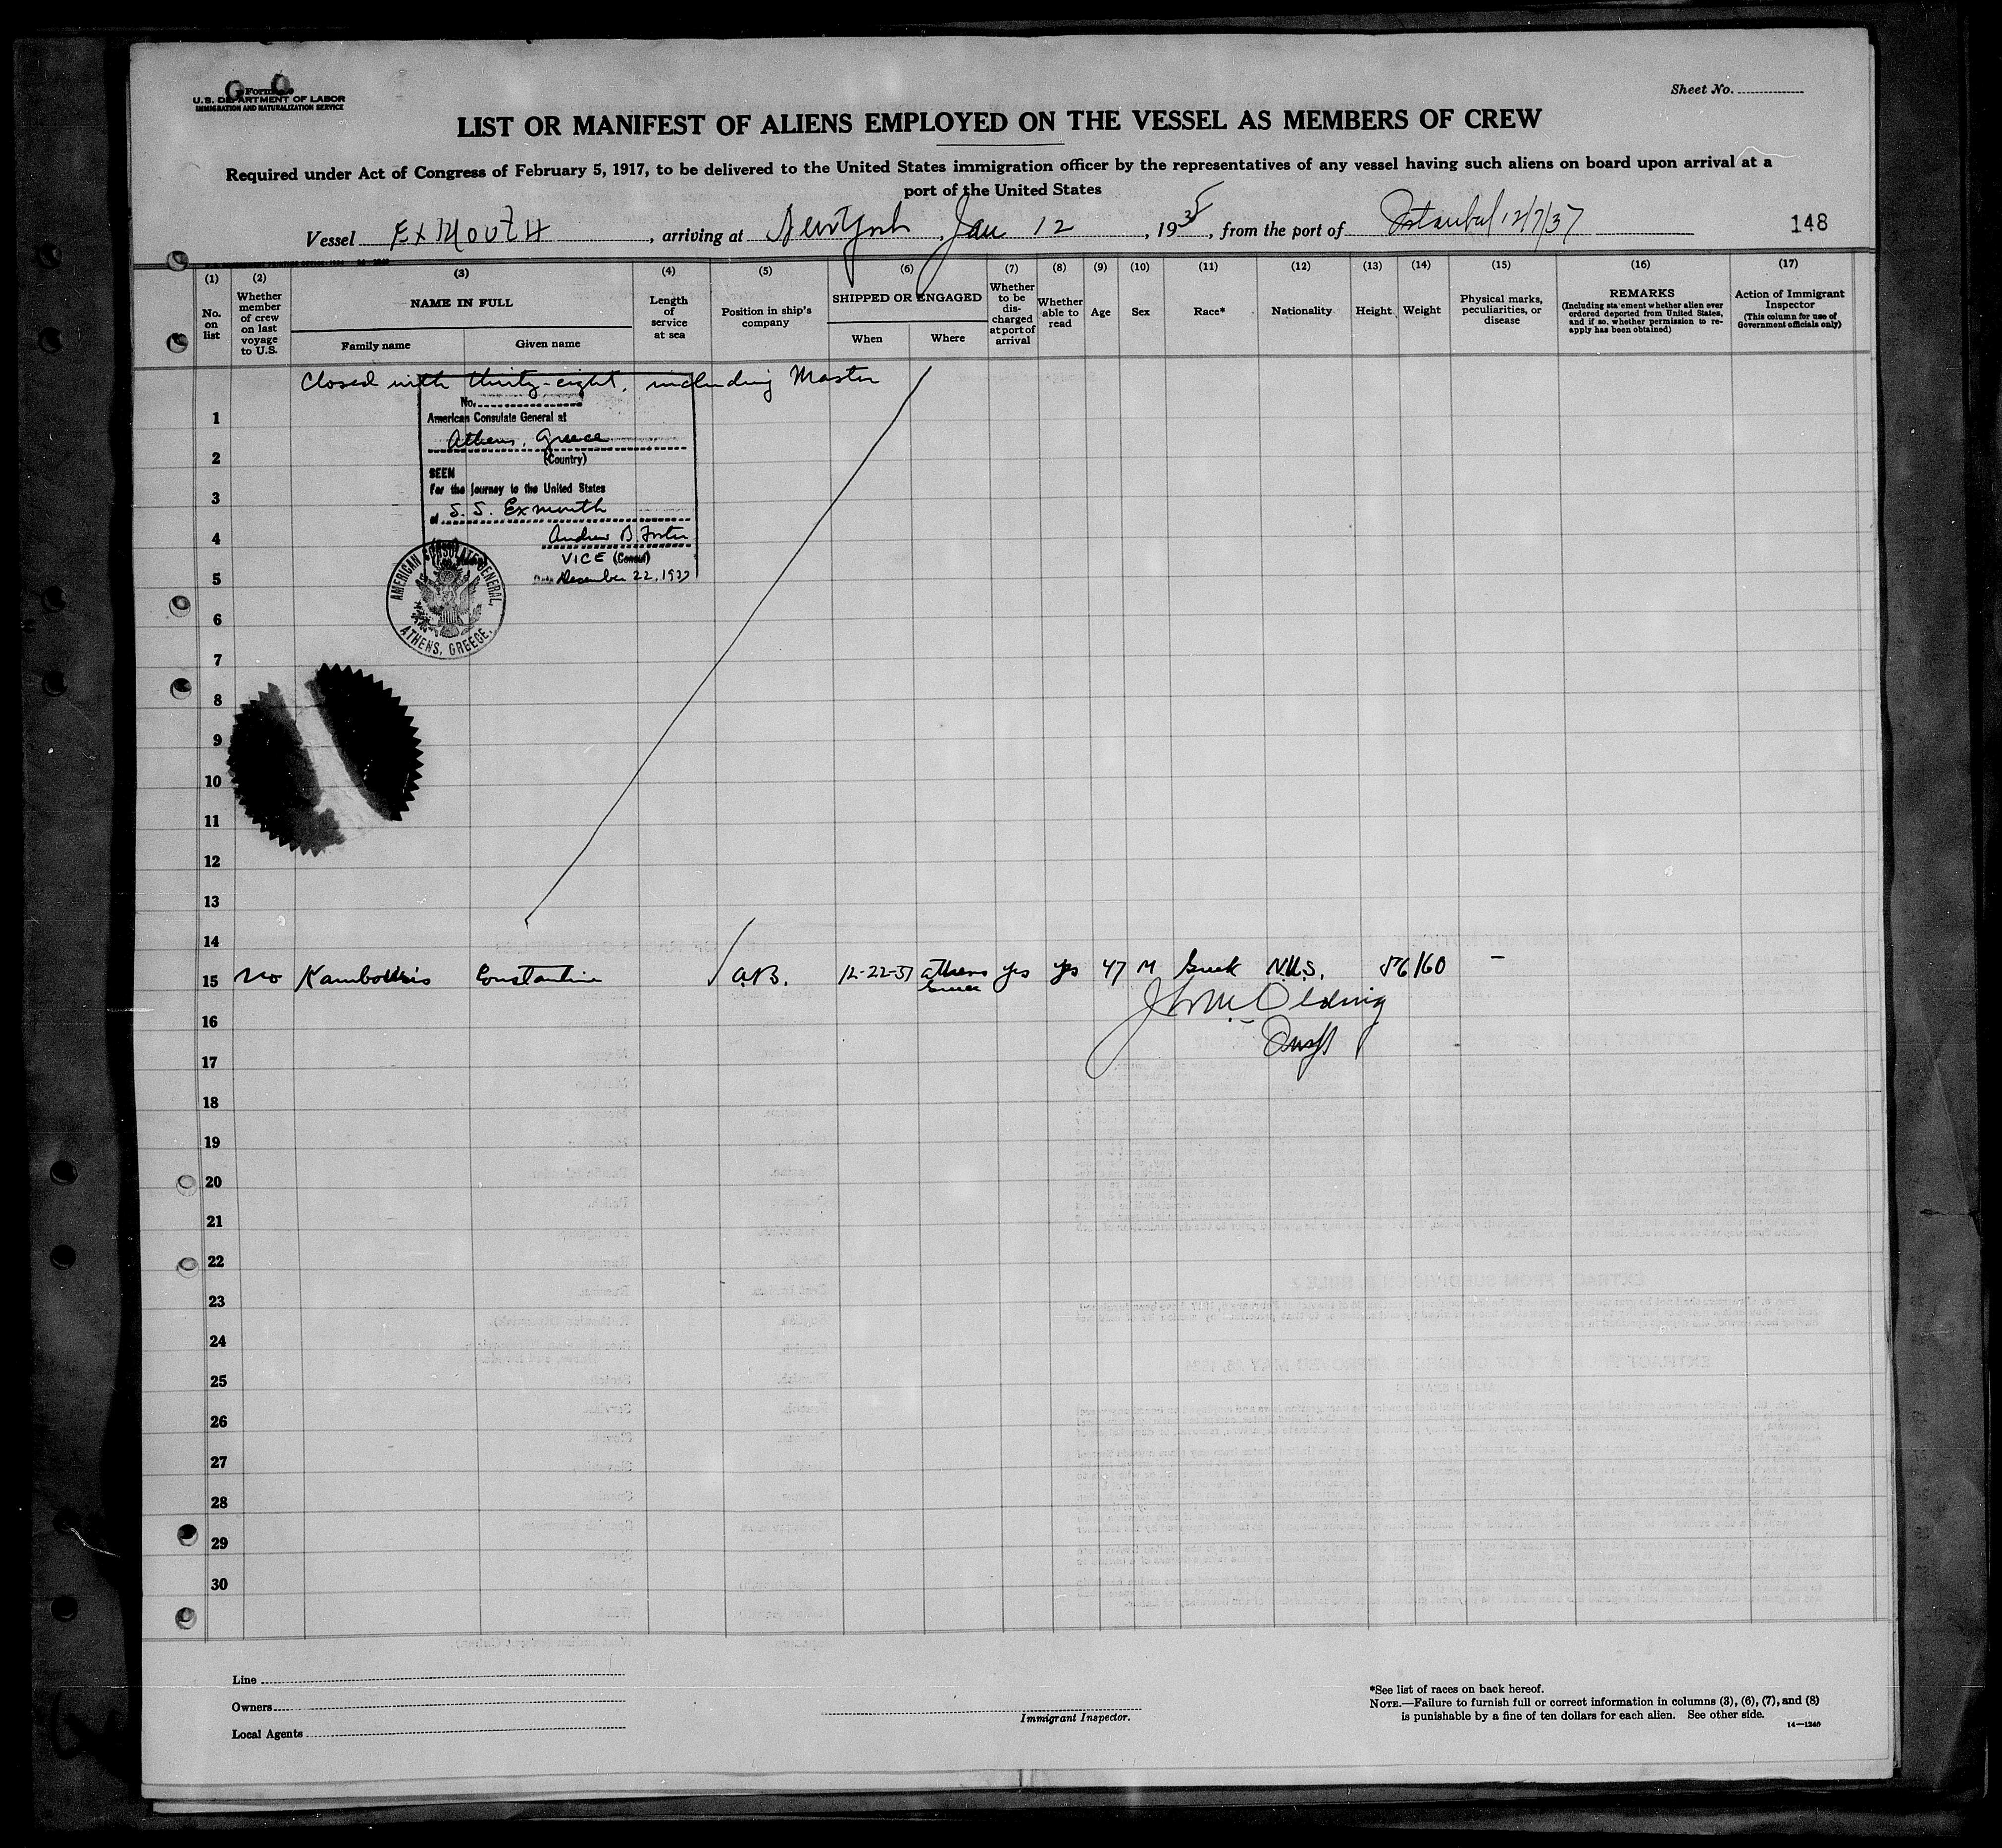 Form
U.S. DEPARTMENT OF LABOR
IMMIGRATION AND NATURALIZATION SERVICE
Sheet No.
LIST OR MANIFEST OF ALIENS EMPLOYED ON THE VESSEL AS MEMBERS OF CREW
Required under Act of Congress of February 5, 1917, to be delivered to the United States immigration officer by the representatives of any vessel having such aliens on board upon arrival at a
port of the United States
Vessel EXMOUTH, arriving at New York, Jan 12, 1938, from the port of Istanbul 12/7/37
148
(1) (2) (3) (4) (5) (6) (7) (8) (9) (10) (11) (12) (13) (14) (15) (16) (17)
No. on list
Whether member of crew on last voyage to U.S.
NAME IN FULL
Family name
Given name
Length of service at sea
Position in ship's company
SHIPPED OR ENGAGED
When
Where
Whether to be discharged at port of arrival
Whether able to read
Age
Sex
Race*
Nationality
Height
Weight
Physical marks, peculiarities, or disease
REMARKS
(Including statement whether alien ever ordered deported from United States, and if so, whether permission to re-apply has been obtained)
Action of Immigrant Inspector
(This column for use of Government officials only)
Closed with thirty-eight, including Master
No.
American Consulate General at
Athens, Greece
(Country)
SEEN
For the journey to the United States
of S. S. Exmouth
Andrew B. Foster
VICE (Consul)
Date December 22, 1937
AMERICAN CONSULATE GENERAL,
ATHENS, GREECE.
1
2
3
4
5
6
7
8
9
10
11
12
13
14
15 No Constantine A.B. 12-22-37 Athens Greece yes yes 47 M Greek N.U.S. 5'6 160 -
16
17
18
19
20
21
22
23
24
25
26
27
28
29
30
Line
Owners
Local Agents
Immigrant Inspector.
*See list of races on back hereof.
NOTE.—Failure to furnish full or correct information in columns (3), (6), (7), and (8)
is punishable by a fine of ten dollars for each alien. See other side.
14—1240